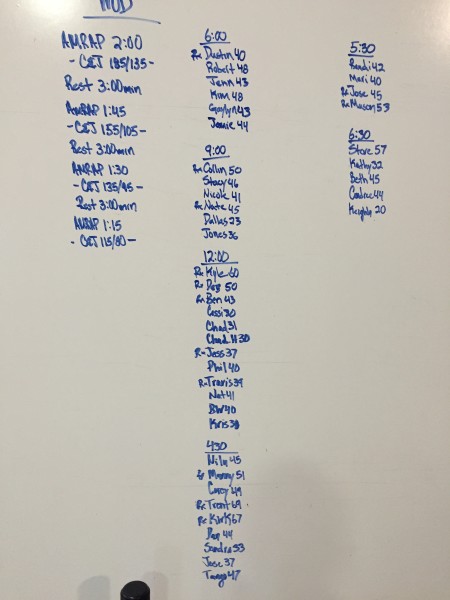 WOD
AMRAP 2:00
- C&J 185/135 -
Rest 3:00min
AMRAP 1:45
- C&J 155/105 -
Rest 3:00min
AMRAP 1:30
- C&J 135/95 -
Rest 3:00min
AMRAP 1:15
- C&J 115/80 -
6:00
Rx Dustin 40
Robert 48
Jenn 43
Kim 48
43
Jamie 44
9:00
Rx Collin 50
Stacy 46
Nicole 41
Rx Nate 45
Dallas 23
Jones 36
12:00
Rx Kyle 60
Rx 50
Rx Ben 43
Cassi 30
Chad 31
Chad H 30
Rx Jess 37
Phil 40
Rx Travis 39
Nat 41
BW 40
Kris
430
45
Manny 51
Corey 49
Rx Trent 69
Rx Kirk 67
44
Sandra 53
Jose 37
47
5:30
Randi 42
Mari 40
Rx Jose 45
Rx Mason 53
6:30
Steve 57
Kathy 32
Beth 45
Candace 44
20